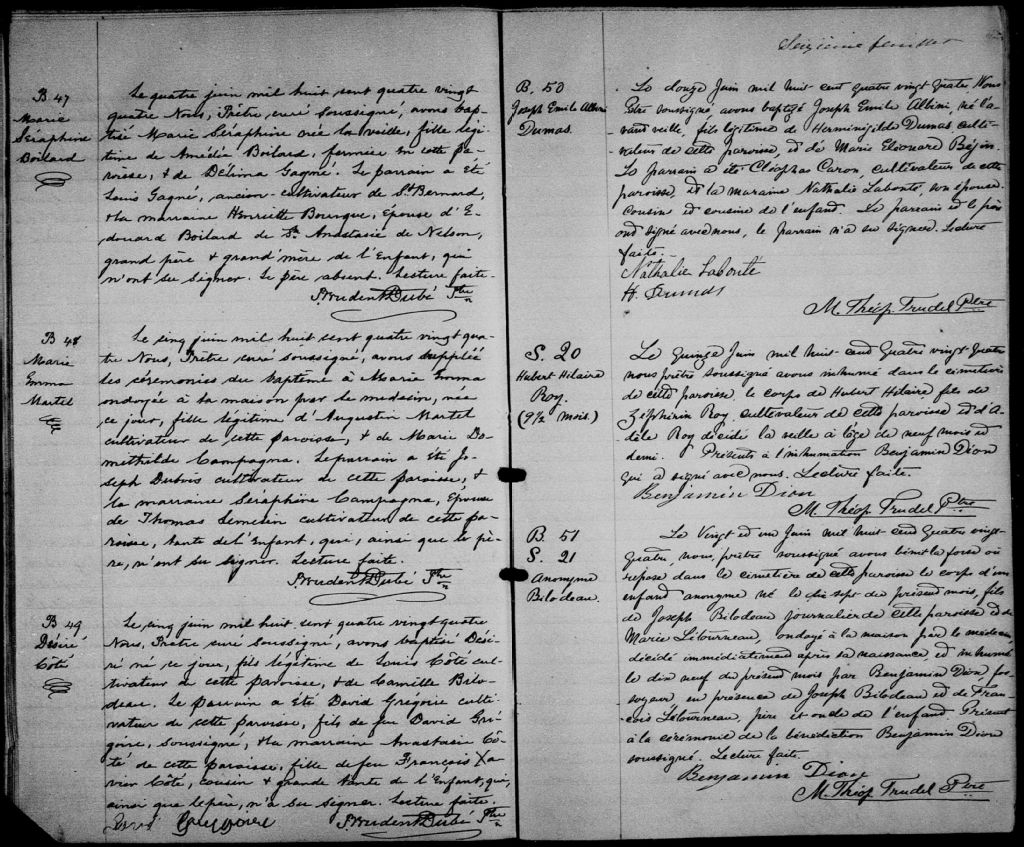 B 47
Marie
Séraphine
Boilard
Le quatre juin mil huit sent quatre vingt
quatre Nous, Prêtre, curé soussigné, avons bap-
tisé Marie Séraphine née la veille, fille légi-
time de Amédée Boilard, fermier en cette pa-
roisse, & de Délima Gagné. Le parrain a été
Louis Gagné, ancien cultivateur de St Bernard,
& la marraine Henriette Bourque, Epouse d'E-
douard Boilard de Ste Anastasie de Nelson,
grand père & grand mère de l'Enfant, qui
n'ont su signer. Le père absent. Lecture faite.
Prudent Dubé Ptre
B 48
Marie
Emma
Martel
Le cinq juin mil huit sent quatre vingt qua-
tre Nous, Prêtre curé soussigné, avons supplié
les cérémonies du baptême à Marie Emma
ondoyée à la maison par le medecin, née
ce jour, fille légitime d'Augustin Martel
cultivateur de cette paroisse, & de Marie Do-
mithilde Campagna. Le parrain a été Jo-
seph Dubois cultivateur de cette paroisse, &
la marraine Séraphine Campagna, Epouse
de Thomas Lemelin cultivateur de cette pa-
roisse, tante de l'Enfant, qui, ainsi que le pè-
re, n'ont su signer. Lecture faite.
Prudent Dubé Ptre
B 49
Désiré
Côté
Le cinq juin mil huit sent quatre vingt quatre
Nous, Prêtre curé soussigné, avons baptisé Dési-
ré né ce jour, fils légitime de Louis Côté cul-
tivateur de cette paroisse, & de Camille Bilo-
deau. Le parrain a été David Grégoire culti-
vateur de cette paroisse, fils de feu David Gré-
goire, soussigné, & la marraine Anastasie Cô-
té de cette paroisse, fille de feu François Xa-
vier Côté, cousin & grande tante de l'Enfant, qui,
ainsi que le père, n'a su signer. Lecture faite.
David Gregoire Prudent Dubé Ptre
Seizième feuillet
B. 50
Joseph Emile Albini
Dumas.
Le douze Juin mil huit cent quatre vingt quatre Nous
Ptre soussigné, avons baptizé Joseph Emile Albini, né l'a-
vant veille, fils légitime de Herminigilde Dumas, culti-
vateur de cette paroisse, et de Marie Eléonare Bégin.
Le parrain a été Cléophas Caron, cultivateur de cette
paroisse, et la maraine Nathalie Labonté, son épouse
cousin et cousine de l'enfand. La maraine et le père
ond signé avec nous, le parrain n'a su signer. Lecture
faite.
Nathalie Labonté
H. Dumas
M. Théop Trudel Ptre
S. 20
Hubert Hilaire
Roy.
(9 1/2 mois)
Le Quinze Juin mil huit-cend Quatre vingt Quatre
nous prêtre soussigné avons inhumé dans le cimetière
de cette paroisse, le corps de Hubert Hilaire fils de
Zéphirin Roy cultivateur de cette paroisse et d'A-
dèle Roy décédé la veille à l'âge de neuf mois et
demi. Présents à l'inhumation Benjamin Dion
qui a signé avec nous. Lecture faite.
Benjamin Dion
M. Théop Trudel Ptre
B. 51
S. 21
Anonyme
Bilodeau.
Le Vingt et un Juin mil huit cend Quatre vingt-
Quatre, nous, prêtre soussigné avons bénit la fosse où
repose dans le cimetière de cette paroisse le corps d'un
enfand anonyme né le dix sept du présent mois, fils
de Joseph Bilodeau journalier de cette paroisse et de
Marie Létourneau, ondoyé à la maison par le médecin,
décidé immédiatement après sa naissance et inhumé
le dix neuf du présend mois par Benjamin Dion, fos-
soyeur en présence de Joseph Bilodeau et de Fran-
cois Létourneau, père et oncle de l'enfand. Présent
à la cérémonie de la bénédiction Benjamin Dion
soussigné. Lecture faite.
Benjamin Dion
M. Théop Trudel Ptre